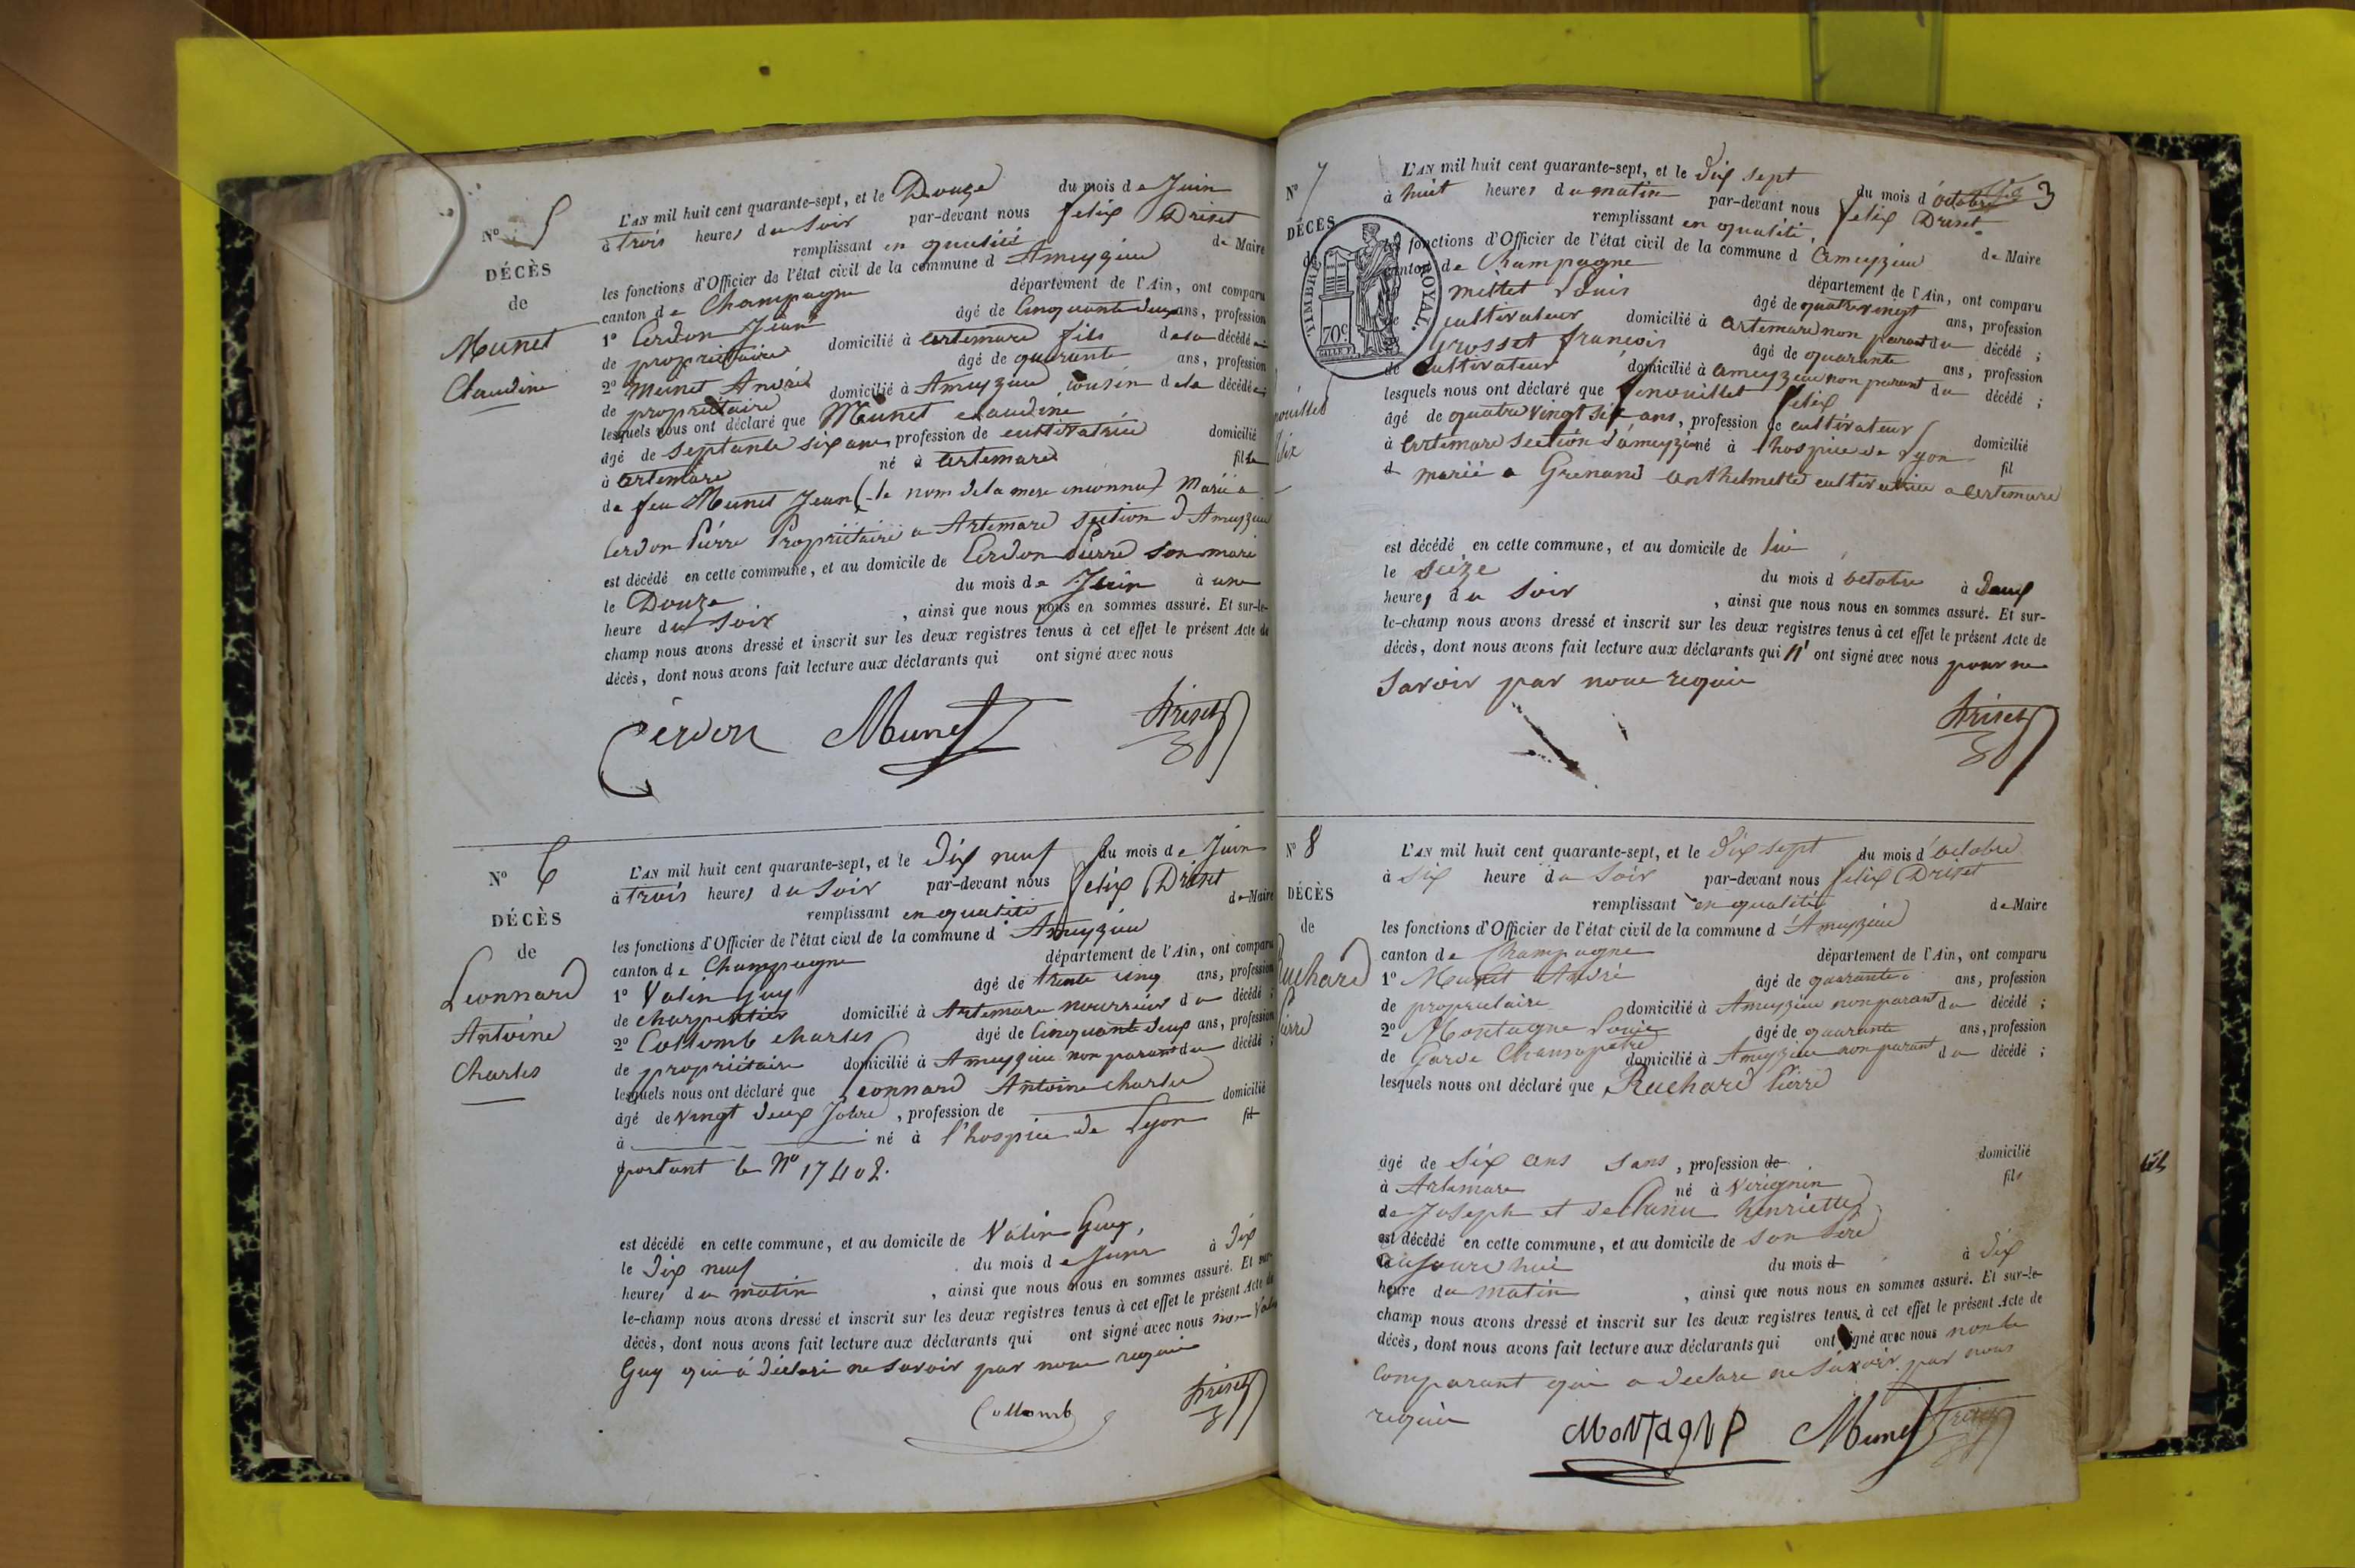 N° 5
DÉCÈS
de
Munet
Claudine
L'AN mil huit cent quarante-sept, et le Douze du mois de Juin
à trois heures du soir par-devant nous felix Driset
remplissant en qualité de Maire
les fonctions d'Officier de l'état civil de la commune d Ameyzieu
canton de Champagne département de l'Ain, ont comparu
1° Cerdon Jean âgé de Cinquante deux ans, profession
de propriétaire domicilié à artemare fils de la décédée
2° Munet André âgé de quarante ans, profession
de propriétaire domicilié à Ameyzieu cousin de la décédée
lesquels nous ont déclaré que Munet claudine
âgé de septante six ans, profession de cultivatrice domicilié
à artemare né à artemare fille
de feu Munet Jean (le nom de la mere inconnu) Marié a
Cerdon Pierre Propriétaire a Artemare Section d'Ameyzieu
est décédé en cette commune, et au domicile de Cerdon Pierre son mari
le Douze du mois de Juin à une
heure du soir , ainsi que nous nous en sommes assuré. Et sur-le-
champ nous avons dressé et inscrit sur les deux registres tenus à cet effet le présent Acte de
décès, dont nous avons fait lecture aux déclarants qui ont signé avec nous
Cerdon Munet Driset
N° 6
DÉCÈS
de
Leonnard
Antoine
Charles
L'AN mil huit cent quarante-sept, et le Dix neuf du mois de Juin
à trois heures du soir par-devant nous felix Driset
remplissant en qualité de Maire
les fonctions d'Officier de l'état civil de la commune d Ameyzieu
canton de Champagne département de l'Ain, ont comparu
1° Valin Guy âgé de trente cinq ans, profession
de charpentier domicilié à Artemare nourricier du décédé ;
2° Collomb charles âgé de Cinquante deux ans, profession
de propriétaire domicilié à Ameyzieu non parant du décédé ;
lesquels nous ont déclaré que Leonnard Antoine charles
âgé de vingt deux Jours , profession de domicilié
à né à l'hospice de Lyon fil
portant le N° 17402.
est décédé en cette commune, et au domicile de Valin Guy,
le Dix neuf du mois de Juin à dix
heures du matin , ainsi que nous nous en sommes assuré. Et sur-
le-champ nous avons dressé et inscrit sur les deux registres tenus à cet effet le présent Acte de
décès, dont nous avons fait lecture aux déclarants qui ont signé avec nous non Valin
Guy qui a déclaré ne savoir par nous requis
Collomb Driset
N° 7
3
DÉCÈS
TIMBRE ROYAL.
70c
L'AN mil huit cent quarante-sept, et le Dix sept du mois d'octobre
à huit heures du matin par-devant nous felix Driset
remplissant en qualité de Maire
les fonctions d'Officier de l'état civil de la commune d ameyzieu
canton de Champagne département de l'Ain, ont comparu
mettet Louis âgé de quatre vingt ans, profession
de cultivateur domicilié à artemare non parant du décédé ;
grosset françois âgé de quarante ans, profession
de cultivateur domicilié à ameyzieu non parant du décédé ;
lesquels nous ont déclaré que fenouillet felix
âgé de quatre vingt six ans, profession de cultivateur domicilié
à artemare section d'ameyzieu né à l'hospice de Lyon fil
d marié a Grenand anthelmette cultivatrice a artemare
est décédé en cette commune, et au domicile de lui
le seize du mois d octobre à Deux
heures du soir , ainsi que nous nous en sommes assuré. Et sur-
le-champ nous avons dressé et inscrit sur les deux registres tenus à cet effet le présent Acte de
décès, dont nous avons fait lecture aux déclarants qui n' ont signé avec nous pour ne
savoir par nous requis
Driset
N° 8
DÉCÈS
de
Ruchard
Pierre
L'AN mil huit cent quarante-sept, et le Dix sept du mois d'octobre
à Six heure du Soir par-devant nous felix Driset
remplissant en qualité de Maire
les fonctions d'Officier de l'état civil de la commune d'Ameyzieu
canton de Champagne département de l'Ain, ont comparu
1° Munet André âgé de quarante ans, profession
de propriétaire domicilié à Ameyzieu non parant du décédé ;
2° Montagne Louis âgé de quarante ans, profession
de Garde Champetre domicilié à Ameyzieu non parant du décédé ;
lesquels nous ont déclaré que Ruchard Pierre
âgé de Six ans Sans , profession de domicilié
à Artemare né à Virignin fils
de Joseph et de henriette
est décédé en cette commune, et au domicile de son Père
aujourd'hui du mois d à dix
heure du matin , ainsi que nous nous en sommes assuré. Et sur-le-
champ nous avons dressé et inscrit sur les deux registres tenus à cet effet le présent Acte de
décès, dont nous avons fait lecture aux déclarants qui ont signé avec nous
Comparant qui a declare ne savoir par nous
requis
MoNTagNe Munet Driset